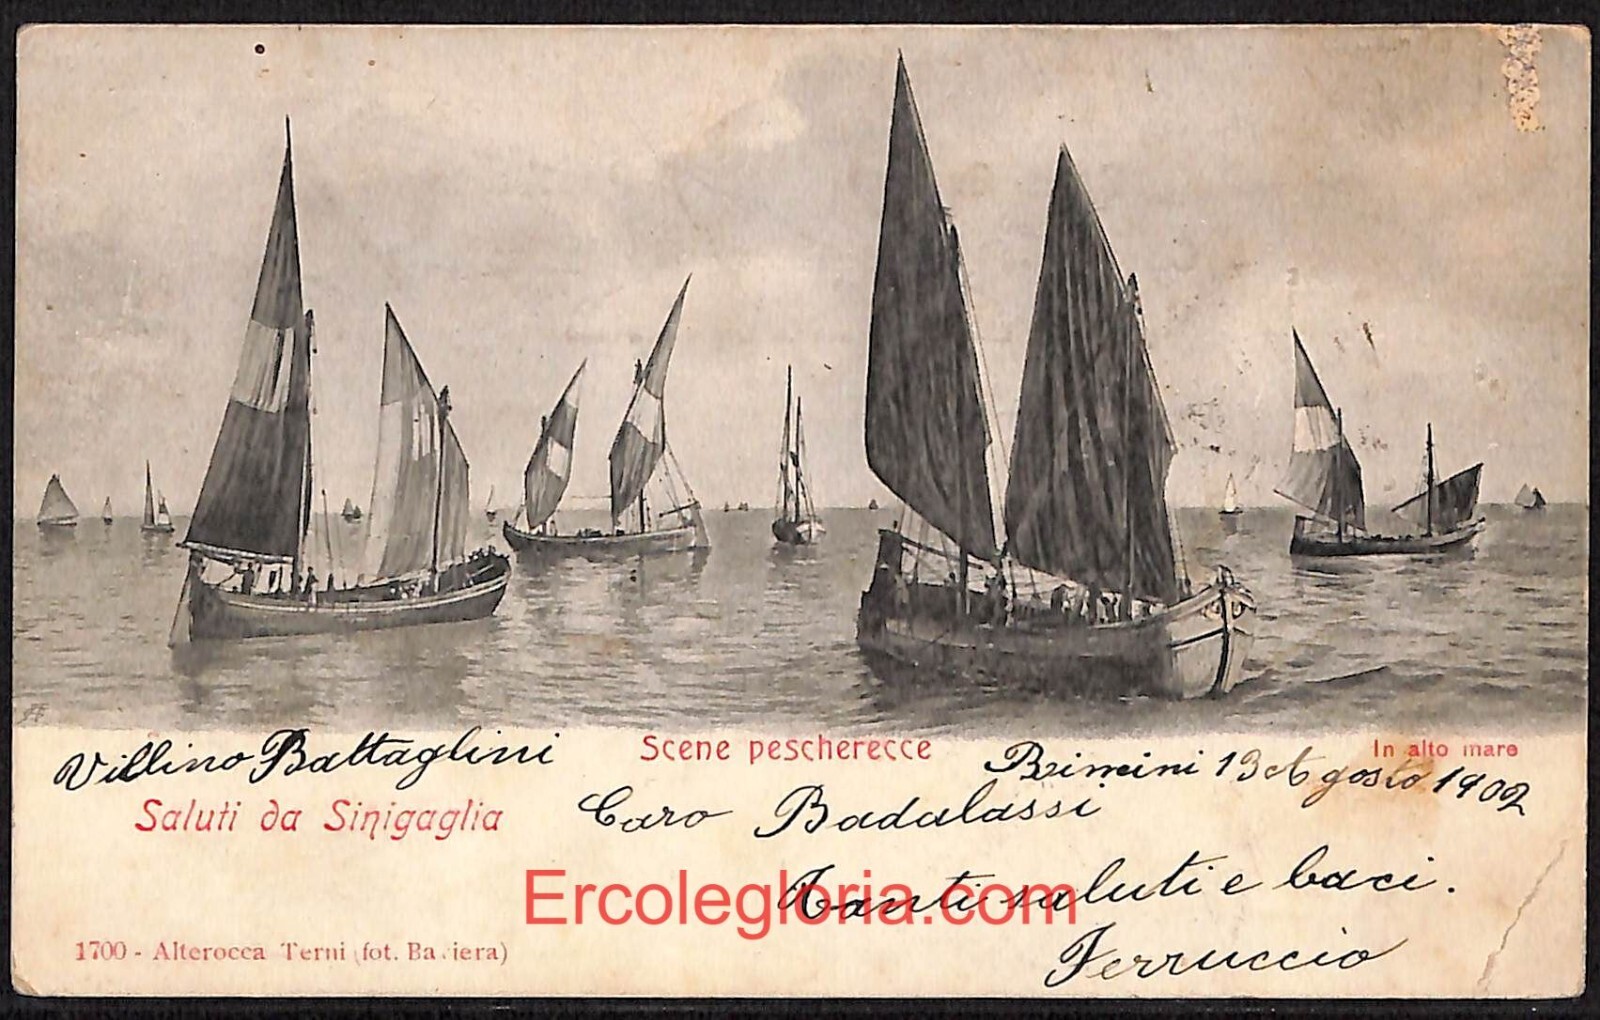 Villino Battaglini
Scene pescherecce
In alto mare
Rimini 13 Agosto 1902
Saluti da Sinigaglia
Caro Badalassi
Tanti saluti e baci.
Ercolegloria.com
Ferruccio
1700 - Alterocca Terni (fot. Baviera)